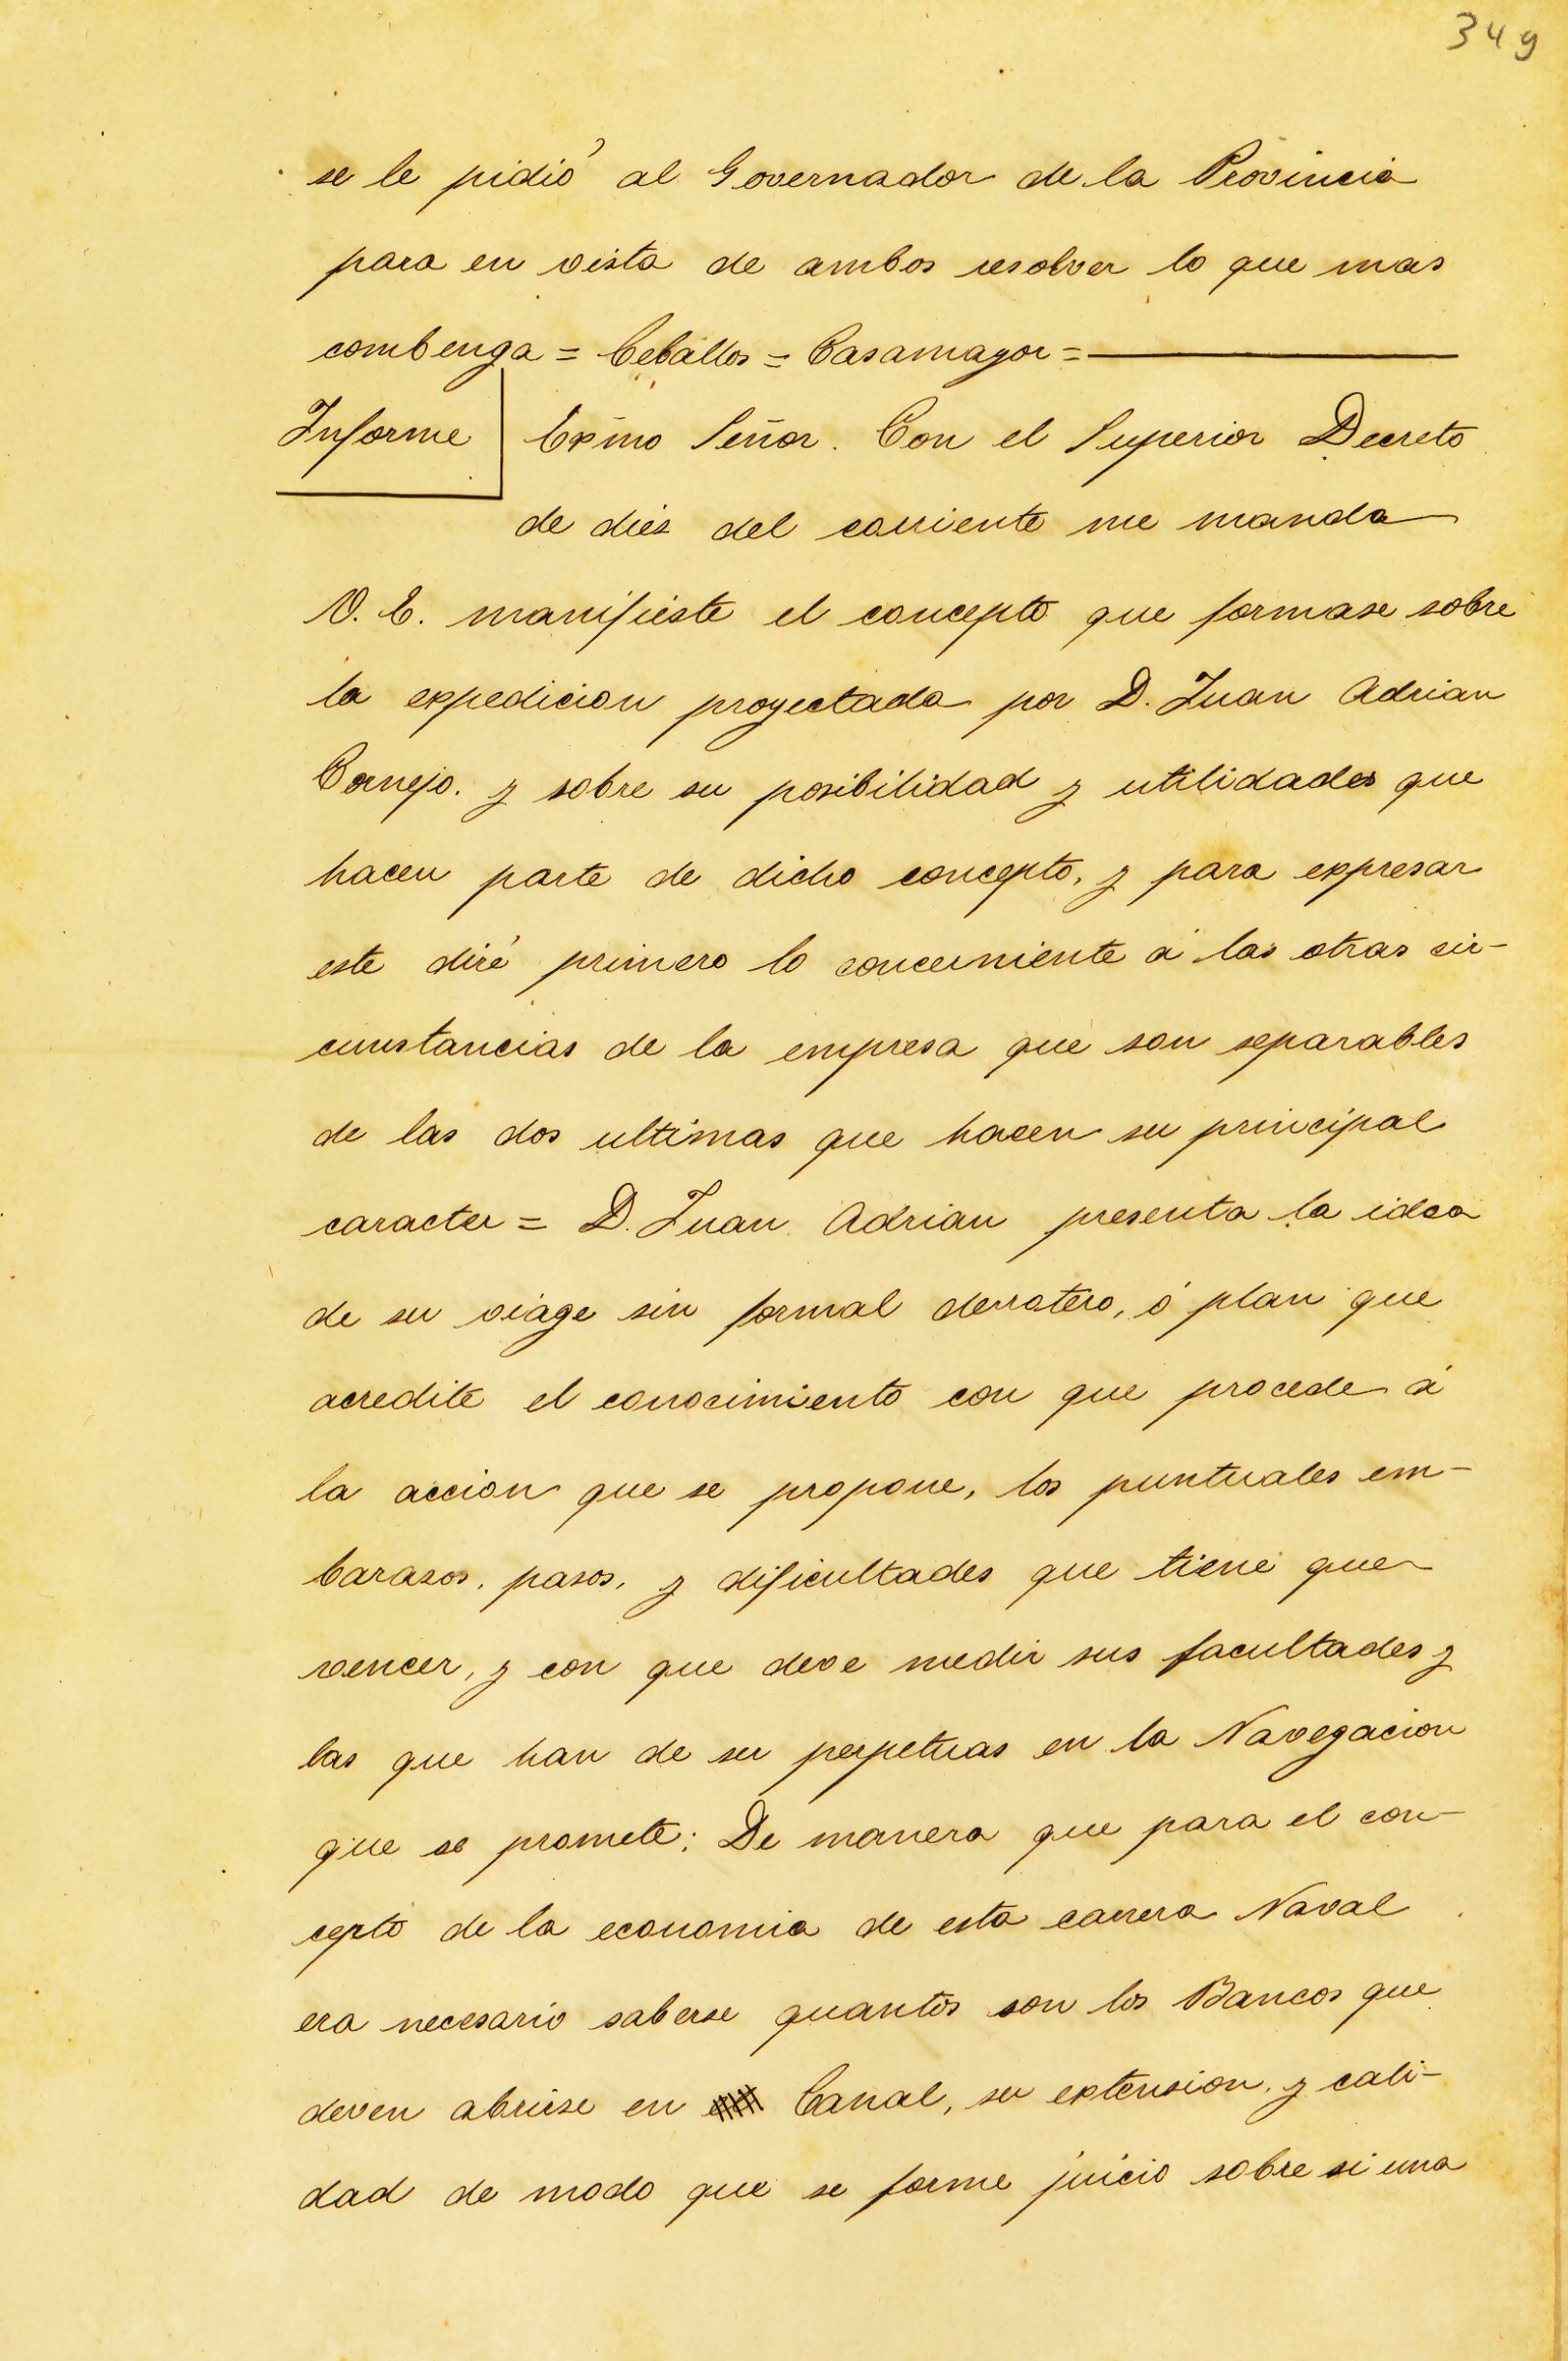 349
se le pidió al Governador de la Provincia
para en vista de ambos resolver lo que mas
combenga = Ceballos = Casamayor =
Informe
Exmo Señor. Con el Superior Decreto
de diez del corriente me manda
V. E. manifieste el concepto que formase sobre
la expedicion proyectada por D. Juan Adrian
Cornejo. y sobre su posibilidad y utilidades que
hacen parte de dicho concepto, y para expresar
este diré primero lo concerniente á las otras cir-
cunstancias de la empresa que son separables
de las dos ultimas que hacen su principal
caracter = D. Juan Adrian presenta la idea
de su viage sin formal derrotero, ó plan que
acredite el conocimiento con que procede á
la accion que se propone, los puntuales em-
barasos, pasos, y dificultades que tiene que
vencer, y con que deve medir sus facultades y
las que han de ser perpetuas en la Navegacion
que se promete: De manera que para el con-
cepto de la economia de esta carrera Naval
era necesario saberse quantos son los Bancos que
deven abrirse en Canal, su extension, y cali-
dad de modo que se forme juicio sobre si una